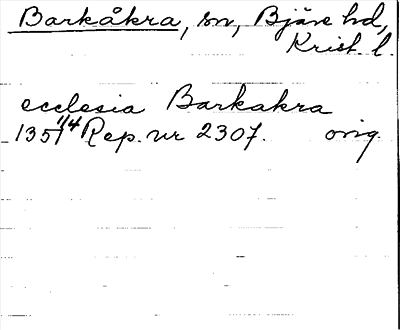 Barkåkra, sn, Bjäre hd,
Krist. l.
ecclesia Barkakra
1351 1/4 Rep. nr 2307. orig.